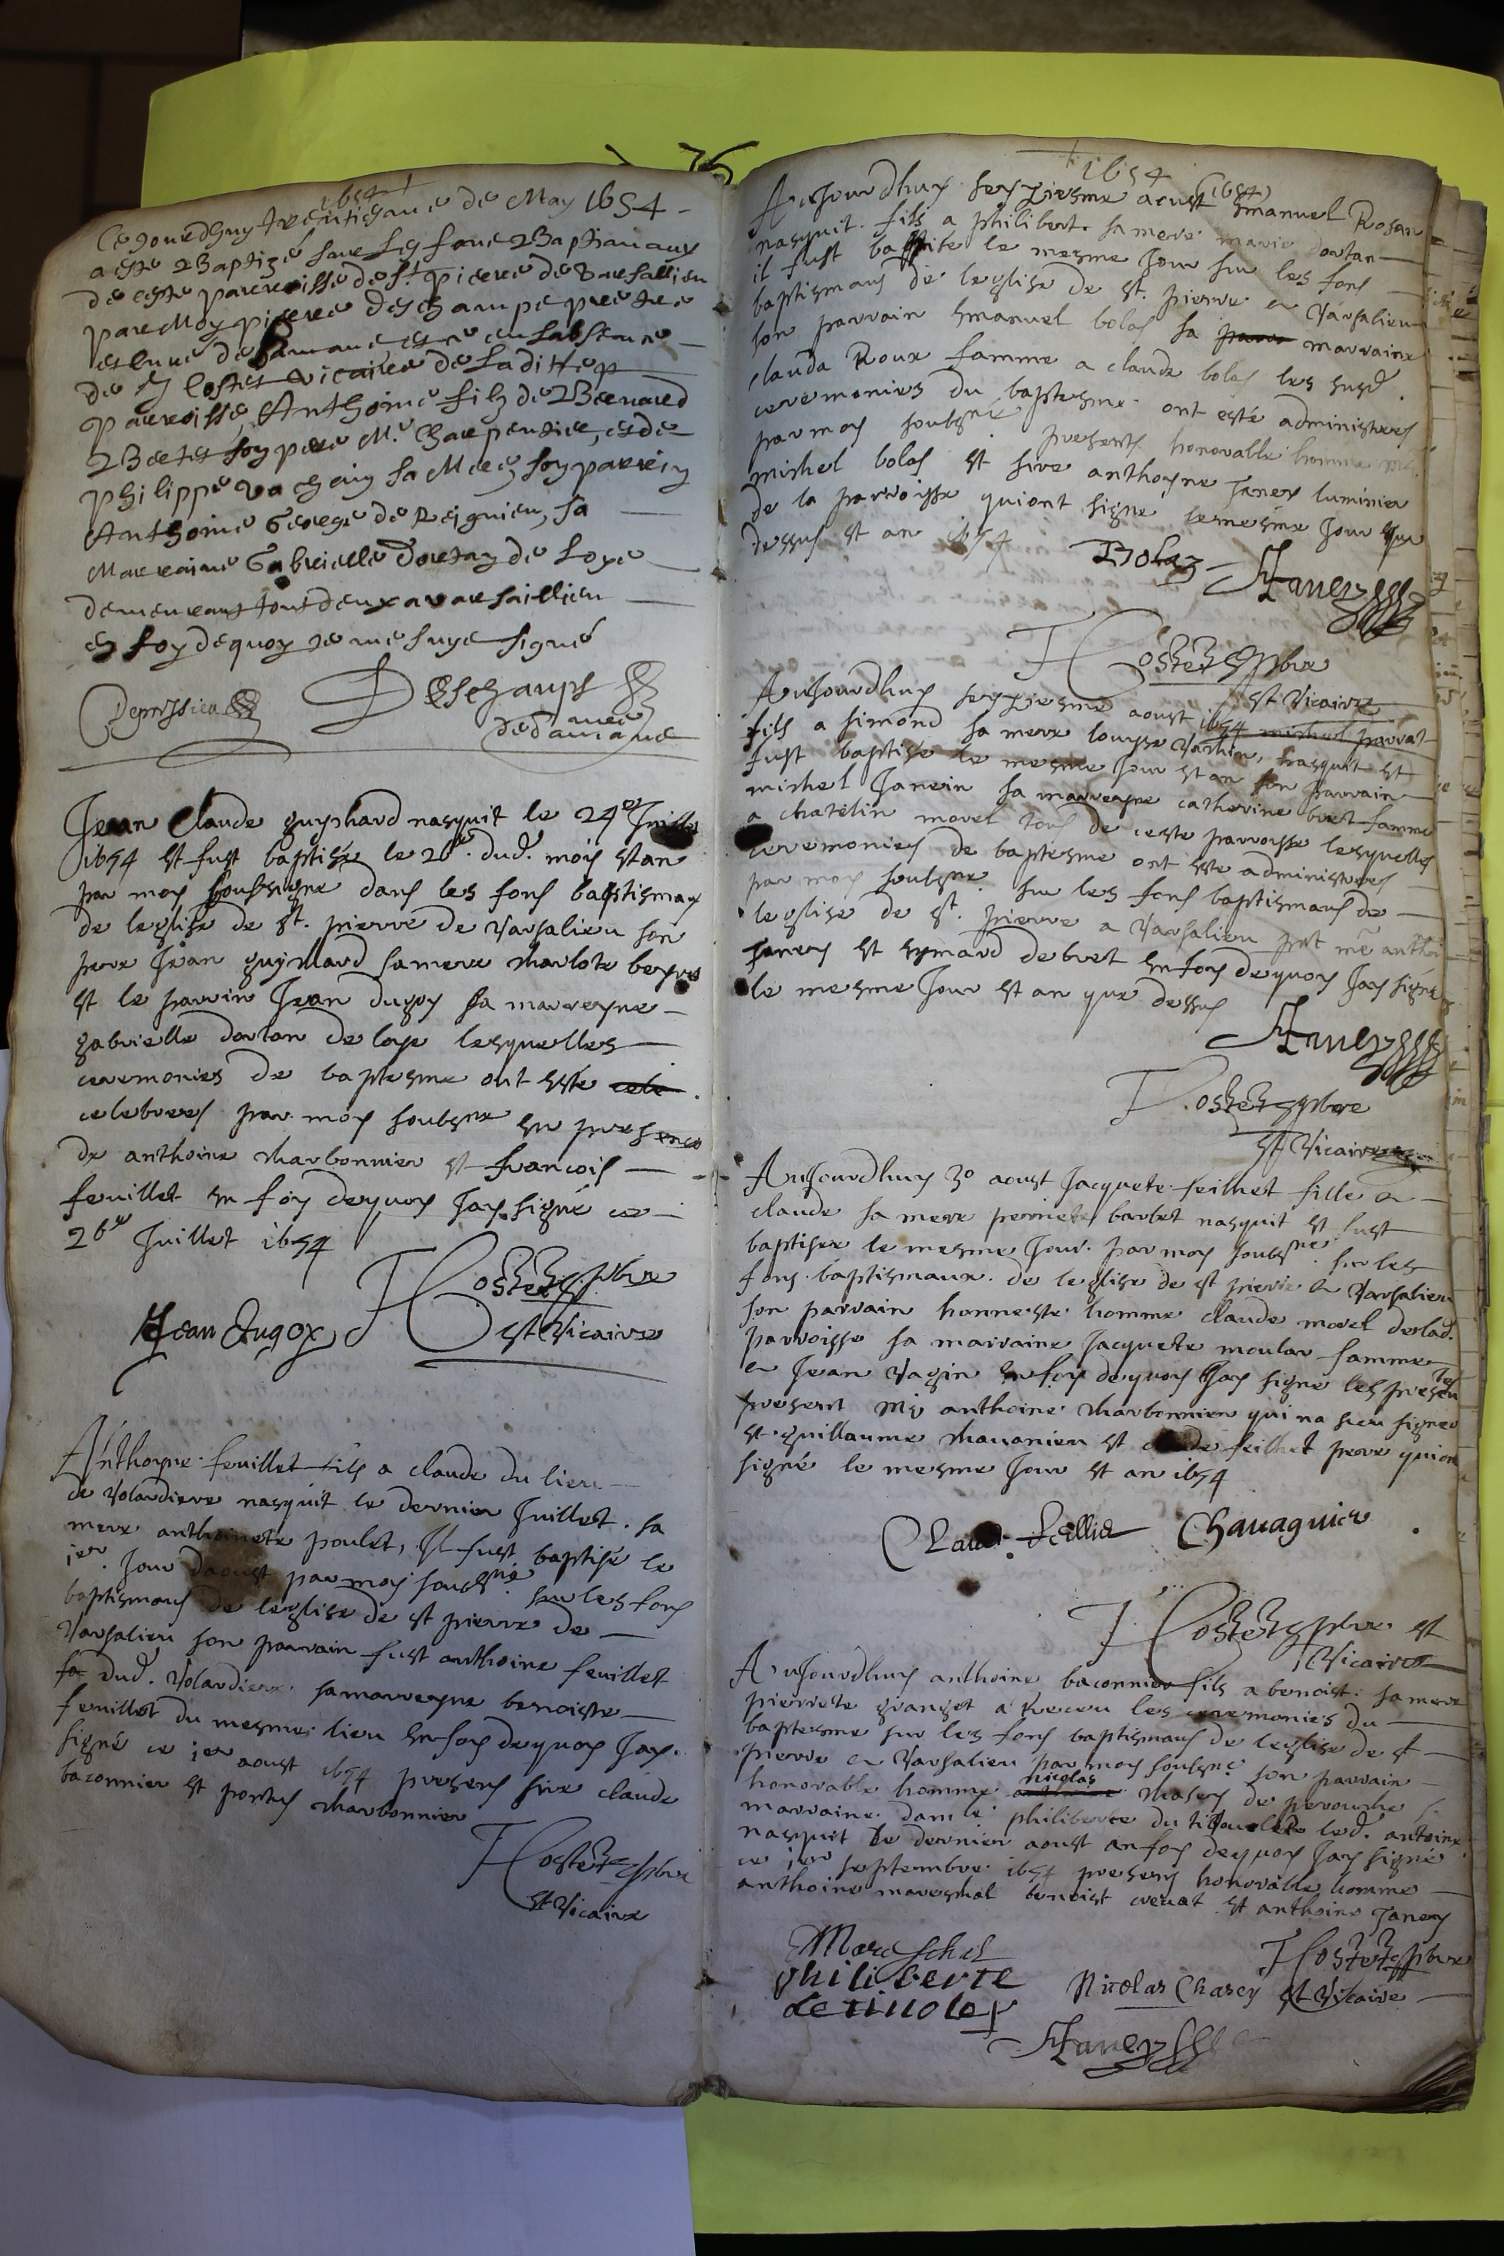 1654
Ce jourdhuy trentiesme de May 1654
a este Baptizé sur les fons Baptismaux
de ceste parroisse de St pierre de Varsallieu
par Moy pierre deschamps prestre
et curé de en labsence
de Costet vicaire de laditte
parroisse, Anthoine filz de Bernard
Bertet son pere Me Charpentier, et de
philippe Vachein sa Mere son parrin
Anthoine George de Reignieu, sa
Marraine Gabrielle Dortan de Loye
demeurant tout deux a Varsaillieu
en foy de quoy je me suys signé
Deschamps
curé
Jean Claude guychard nasquit le 24e Juillet
1654 et fust baptisé le 26e dud. mois et an
par moy soubsigné dans les fons baptismaux
de leglise de St. pierre de Varsalieu son
pere Jean guychard sa mere charlote
et le parrin Jean dugoy sa marreyne
gabrielle dortan de loye lesquelles
ceremonies de baptesme ont este
celebrees par moy soubsne en presence
de anthoine charbonnier et francois
feuillet en foy dequoy Jay signé ce
26e Juillet 1654
Costet pbre
et Vicaire
Jean Dugoy
Anthoyne feuillet fils a claude du lieu
de Volardiere nasquit le dernier Juillet. sa
mere anthoinete poulet, Il fust baptisé le
ier Jour daoust par moy soubsné sur les fons
baptismaus de leglise de st pierre de
Varsalieu son parrain fust anthoine feuillet
dud. Volardiere sa marreyne benoiste
feuillet du mesme lieu en foy dequoy Jay
signé ce ier aoust 1654 presens sire claude
baconnier et charbonnier
Costet pbre
et Vicaire
1654
Aujourdhuy seiziesme aoust (1654) Emanuel Rosan
nasquit fils a philibert sa mere marie dortan
il fust baptise le mesme Jour sur les fons
baptismaus de leglise de st. pierre a Varsalieu
son parrain Emanuel bolas sa marraine
clauda Roux famme a claude bolas les susd.
ceremonies du baptesme ont esté administrees
par moy soubsné presents honorable homme
michel bolas et sire anthoyne Janey luminier
de la parroisse qui ont signe le mesme Jour que
dessus et an 1654
Bolaz
Janey
Costet pbre
et Vicaire
Aujourdhuy seiziesme aoust 1654 michel
fils a simond sa mere louyse Vachin, nasquit et
fust baptisé le mesme Jour et an son parrain
michel Janein sa marreyne catherine bret famme
a chatelin morel tous de ceste parroisse lesquelles
ceremonies de baptesme ont este administrees
par moy soubsne sur les fons baptismaus de
leglise de st. pierre a Varsalieu
Janey et symard de bret en foy dequoy Jay signé
le mesme Jour et an que dessus
Janey
Costet pbre
et Vicaire
Aujourdhuy 30 aoust Jacquete feilhet fille a
claude sa mere pernete barbet nasquit et fust
baptisée le mesme Jour par moy soubsné sur les
fons baptismaux de leglise de st pierre a Varsalieu
son parrain honneste homme claude morel de lad.
parroisse sa marraine Jacquete moular famme
a Jean Vagin en foy dequoy Jay signé les presentes
present anthoine charbonnier qui na sceu signer
et guillaume chavanieu et feilhet pere qui ont
signé le mesme Jour et an 1654
Claude feillet
Chavagnieu
Costet pbre et
Vicaire
Aujourdhuy anthoine baconnier fils a benoist sa mere
pierrete granget a Receu les ceremonies du
baptesme sur les fons baptismaus de leglise de st
pierre a Varsalieu par moy soubsné son parrain
honorable homme nicolas chasey de perouche
marraine damle philiberte du tillolet led. antoine
nasquit le dernier aoust en foy dequoy Jay signé
ce ier septembre 1654 presens honorable homme
anthoine mareschal benoist crevat et anthoine Janey
Mareschal
philiberte
de tillolet
Nicolas Chasey
Costet pbre
et Vicaire
Janey